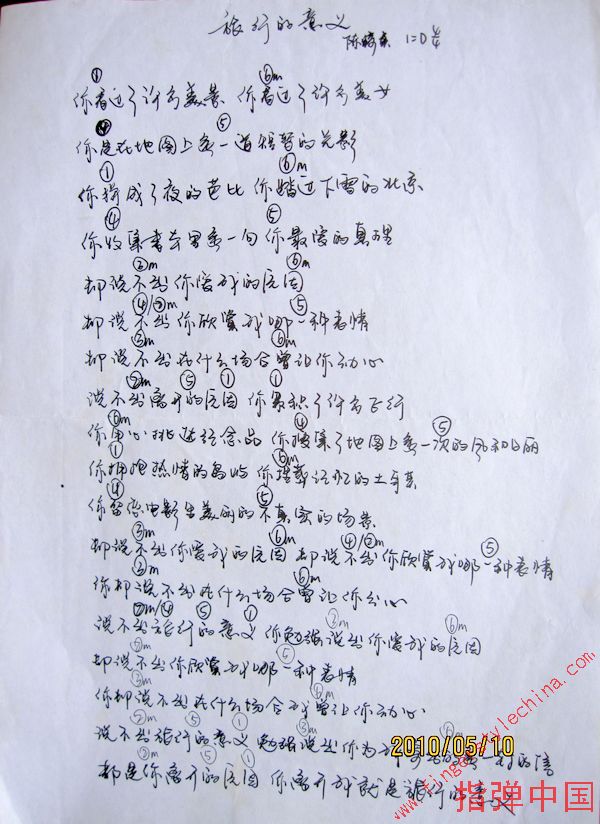 旅行的意义
陈绮贞 1=D 4/4
① ⑥m
你看过了许多美景 你看过了许多美女
④ ⑤
你迷在地图上每一道短暂的光影
① ⑥m
你猜成了夜的芭比 你踏过下雪的北京
④ ⑤
你收集书本里每一句你最爱的真理
③m ⑥m
却说不出你爱我的原因
④/②m ⑤
却说不出你欣赏我哪一种表情
③m ⑥m
却说不出在什么场合曾让你动心
②m ⑤ ① ①
说不出离开的原因 你累积了许多飞行
⑥m ④ ⑤
你用心挑选纪念品 你搜集了地图上每一次的风和日丽
① ⑥m
你拥抱热情的岛屿 你埋葬记忆的土耳其
④ ⑤
你留恋电影里美丽的不真实的场景
③m ⑥m ④/②m ⑤
却说不出你爱我的原因 却说不出你欣赏我哪一种表情
③m ⑥m
你却说不出在什么场合曾让你分心
②m/④ ⑤ ① ③m ⑥m
说不出旅行的意义 你勉强说出你爱我的原因
②m ⑤
却说不出你欣赏我哪一种表情
③m ⑥m
你却说不出在什么场合我曾让你动心
②m ⑤ ① ③m ⑥m
说不出旅行的意义 勉强说出你为我寄出的每一封的信
②m ⑤ ①
都是你离开的原因 你离开我就是旅行的意义
2010/05/10
www.fingerstylechina.com
指弹中国